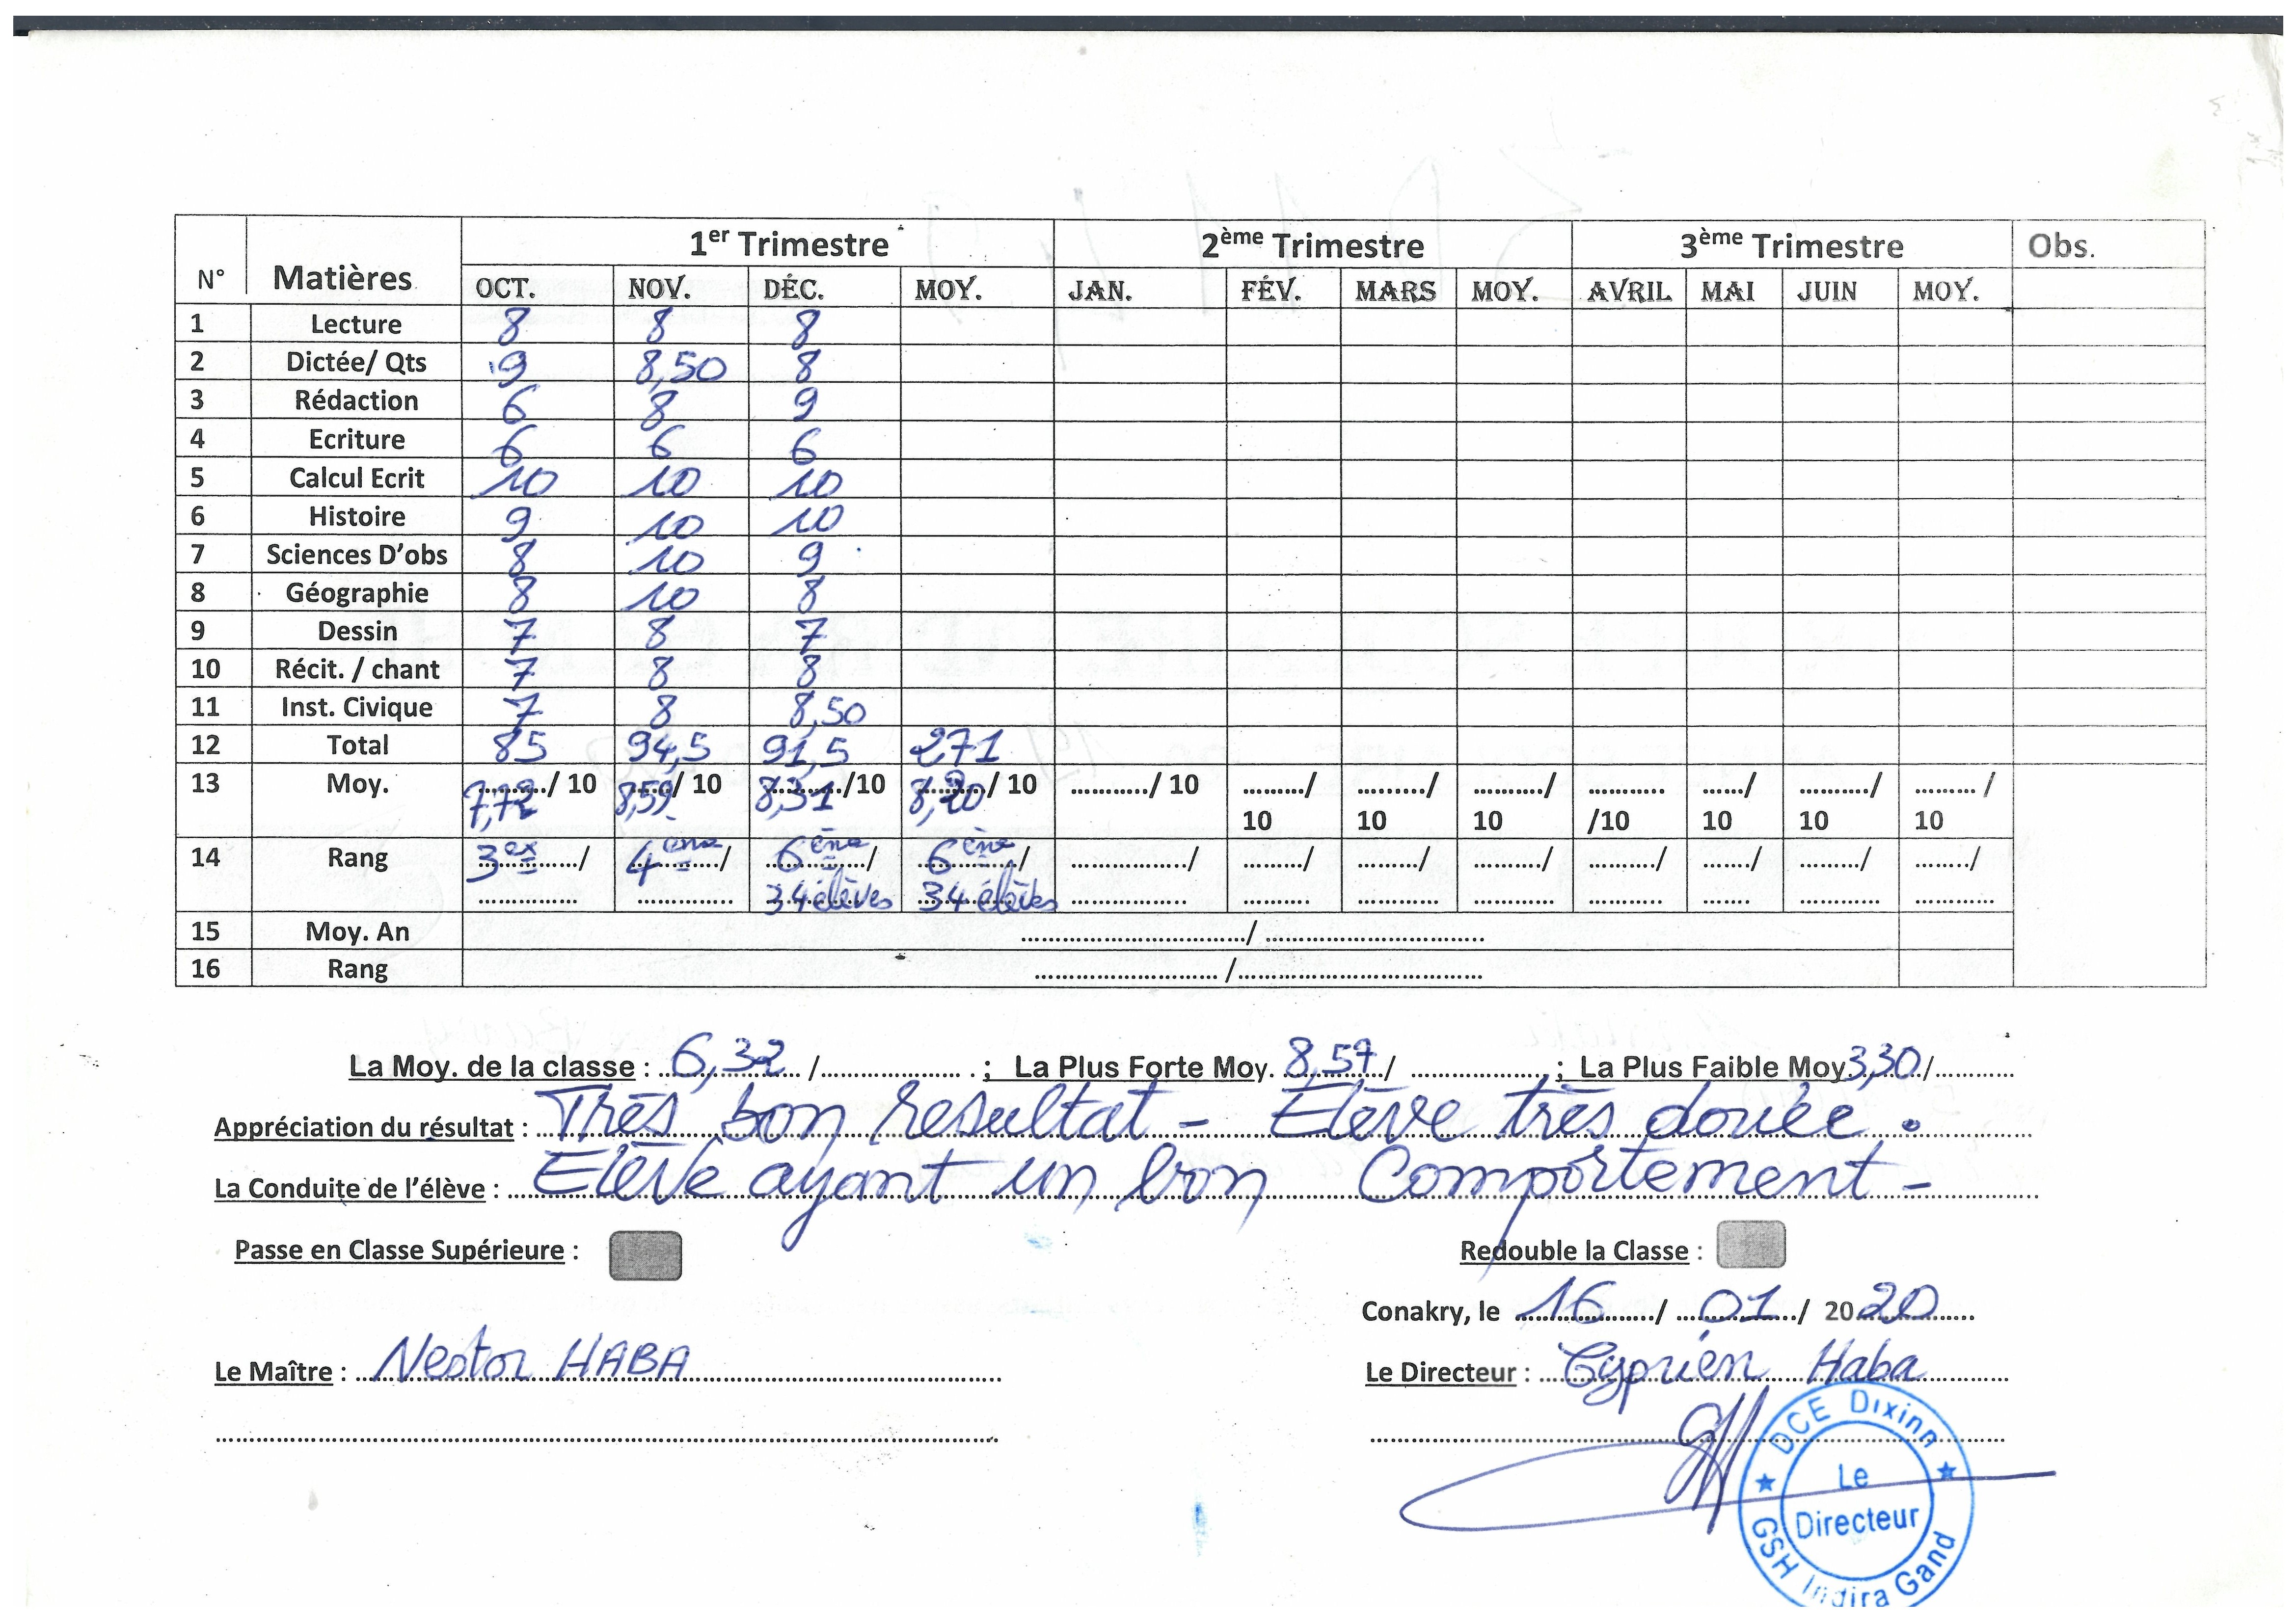 1er Trimestre 2ème Trimestre 3ème Trimestre Obs.
N° Matières OCT. NOV. DÉC. MOY. JAN. FÉV. MARS MOY. AVRIL MAI JUIN MOY.
1 Lecture 8 8 8
2 Dictée/ Qts 9 8,50 8
3 Rédaction 6 8 9
4 Ecriture 6 6 6
5 Calcul Ecrit 10 10 10
6 Histoire 9 10 10
7 Sciences D'obs 8 10 9
8 Géographie 8 10 8
9 Dessin 7 8 7
10 Récit. / chant 7 8 8
11 Inst. Civique 7 8 8,50
12 Total 85 94,5 91,5 271
13 Moy. 7,72/ 10 8,59/ 10 8,31/10 8,20/ 10 .........../ 10 ........./ 10 ........../ 10 ........../ 10 ........... /10 ....../ 10 ........../ 10 ......... / 10
14 Rang 3ex / 4ème / 6ème / 34 élèves 6ème / 34 élèves ............../ ........./ ........./ ........../ ........./ ......./ ........./ ......../
15 Moy. An ................................/ ................................
16 Rang .......................... /...................................
La Moy. de la classe : 6,32 /.................... . ; La Plus Forte Moy. 8,57/ .................... ; La Plus Faible Moy 3,30/............
Appréciation du résultat : Très bon resultat - Elève très douée.
La Conduite de l'élève : Elève ayant un bon Comportement -
Passe en Classe Supérieure : Redouble la Classe :
Conakry, le 16 / 01 / 2020
Le Maître : Nestor HABA Le Directeur : Cyprien Haba
DCE Dixinn
Le
Directeur
GSH Indira Gand